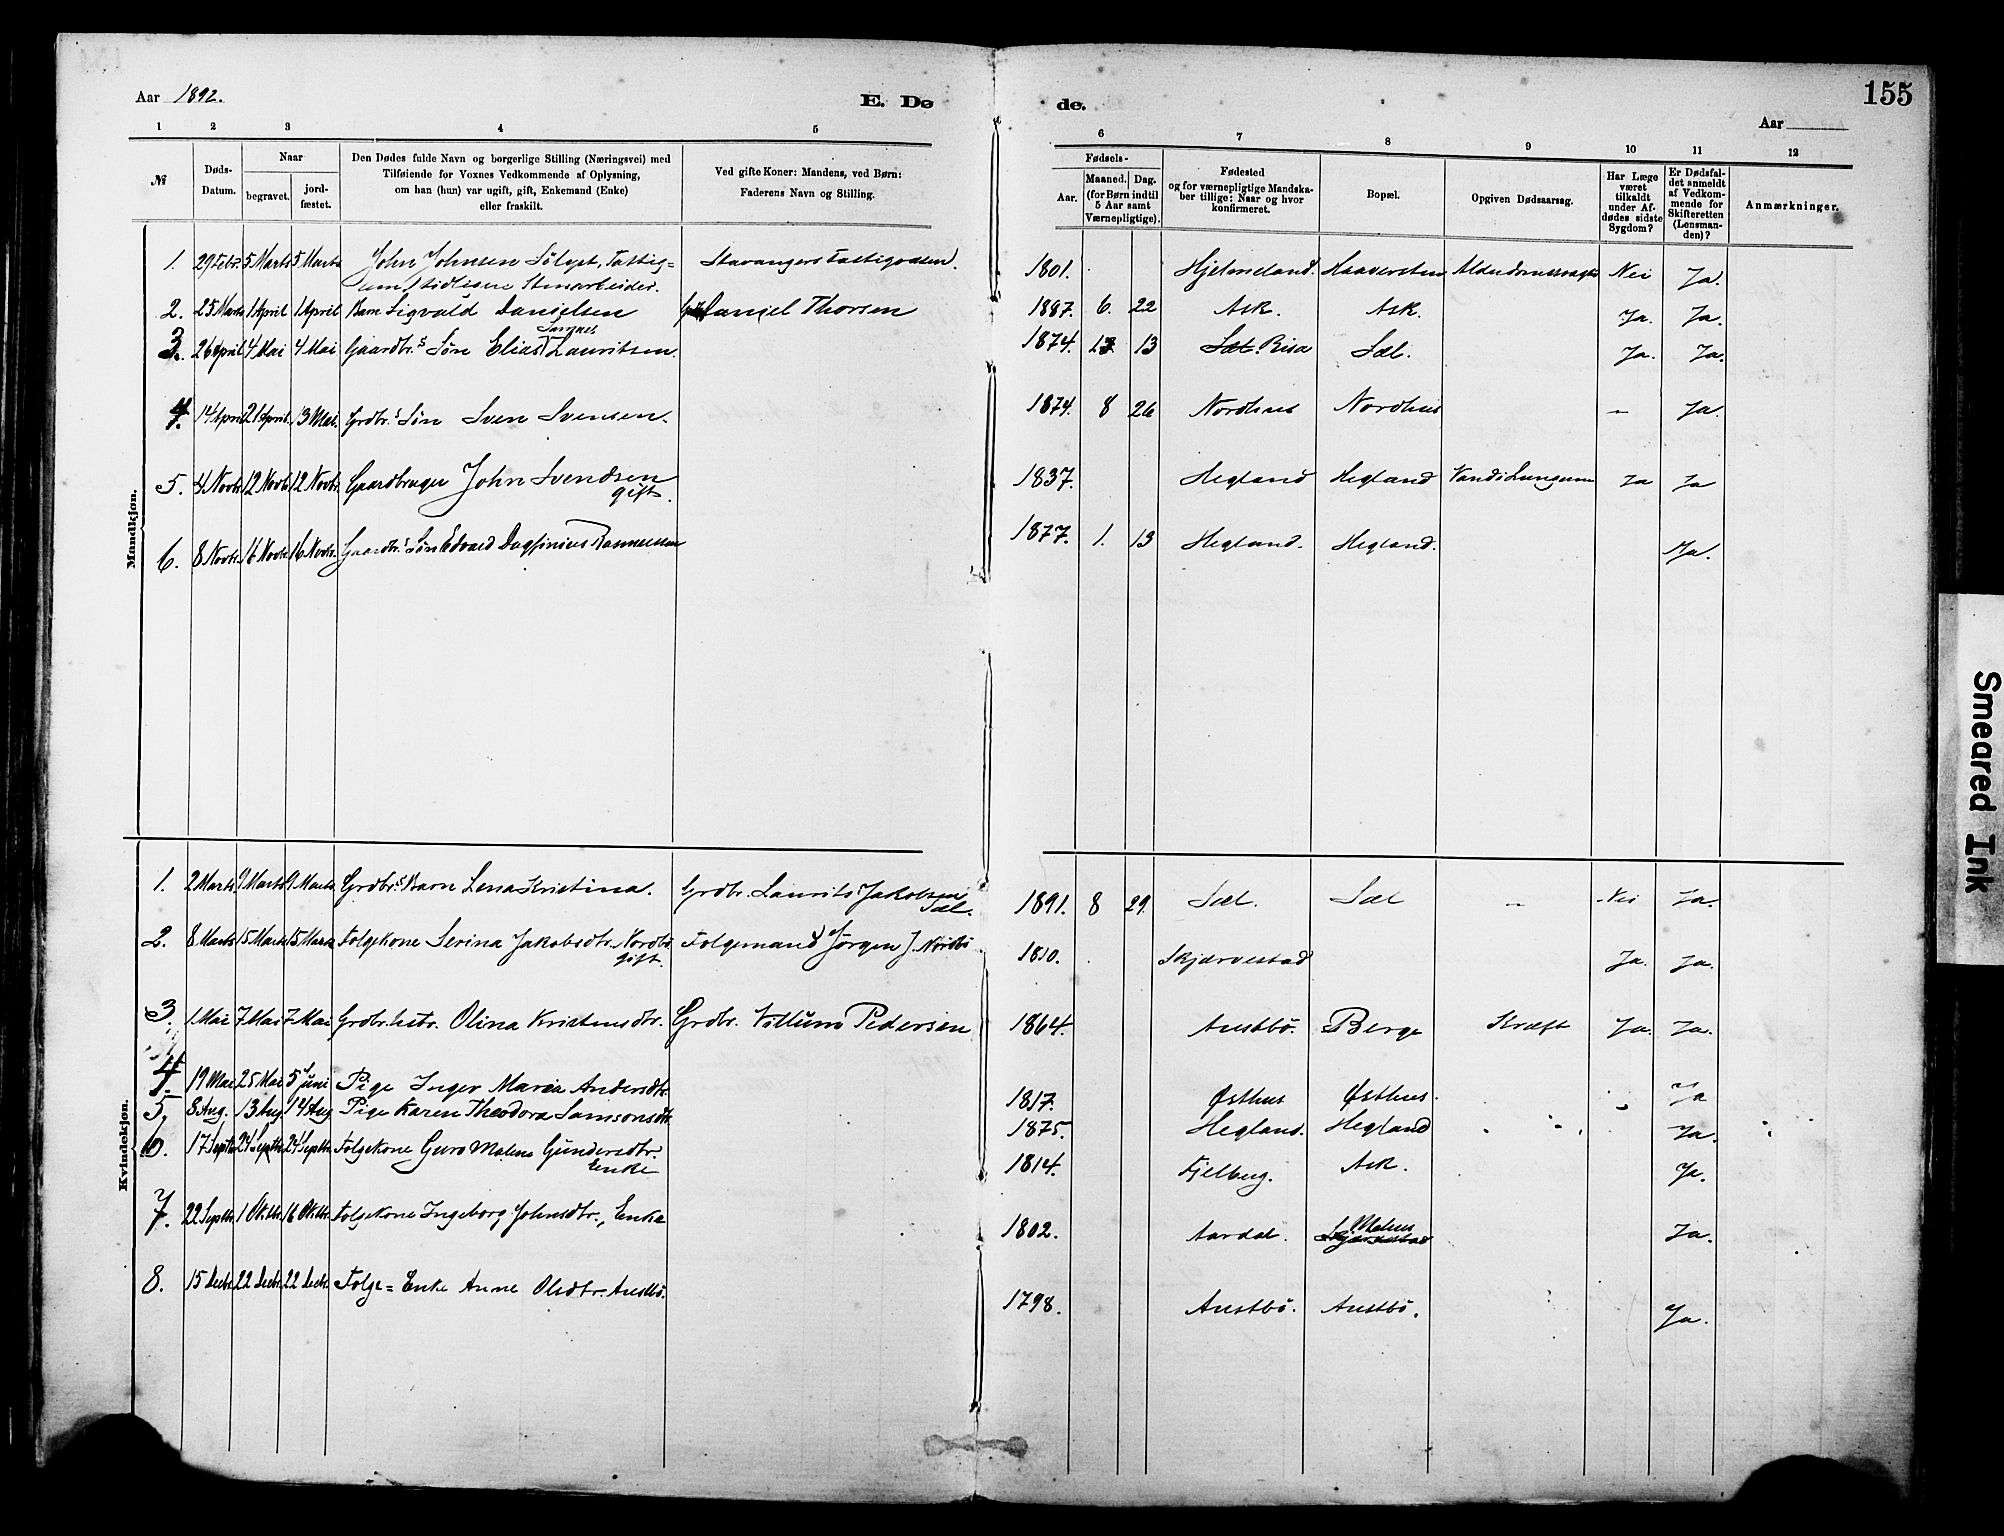 Aar 1892.
E. Dø
de.
155
Aar
1 2 3 4 5
6 7 8 9 10 11 12
№
Døds-Datum.
Naar
begravet.
jord-fæstet.
Den Dødes fulde Navn og borgerlige Stilling (Næringsvei) med
Tilføiende for Voxnes Vedkommende af Oplysning,
om han (hun) var ugift, gift, Enkemand (Enke)
eller fraskilt.
Ved gifte Koner: Mandens, ved Børn:
Faderens Navn og Stilling.
Fødsels-
Aar.
Maaned. Dag.
(for Børn indtil
5 Aar samt
Værnepligtige).
Fødested
og for værnepligtige Mandska-
ber tillige: Naar og hvor
konfirmeret.
Bopæl.
Opgiven Dødsaarsag.
Har Læge
været
tilkaldt
under Af-
dødes sidste
Sygdom?
Er Dødsfal-
det anmeldt
af Vedkom-
mende for
Skifteretten
(Lensman-
den)?
Anmærkninger.
Mandkjøn.
1. 29 Febr. 5 Marts 5 Marts John Johnsen Fattig= Stavangers 1801. Hjelmeland. Nei Ja.
2. 25 Marts 1 April 1 April Barn Sigvald Danielsen Daniel Thorsen 1887. 6. 22 Ask. Ask. Ja. Ja.
3. 26 April 4 Mai 4 Mai Gaardbr.s Søn Elias Lauritsen 1874. 13 Sæl. Risa Sæl. Ja. Ja.
4. 14 April 21 April. 13 Mai. Grdbr.s Søn Sven Svensen. 1874. 8 26 Nordhus Nordhus - Ja.
5. 4 Novbr. 12 Novbr. 12 Novbr. Gaardbruger John Svendsen gift. 1837. Hegland Hegland Vand i Lungerne Ja Ja
6. 8 Novbr. 16 Novbr. 16 Novbr. Gaardbr.s Søn Edvard Dagfinius Rasmussen 1877. 1. 13 Hegland. Hegland. Ja.
Kvindekjøn.
1. 2 Marts 9 Marts 9 Marts Grdbr.s Barn Lena Kristina. Grdbr. Laurits Jakobsen Sæl. 1891. 8 29. Sæl. Sæl - Nei Ja.
2. 8 Marts 15 Marts 15 Marts Folgekone Serina Jakobsdtr. Nordbö gift. Folgemand Jörgen J. Nordbö 1810. Skjærvestad Ja. Ja.
3. 1 Mai 7 Mai 7 Mai Olina Kristensdtr. Grdbr. Villum Pedersen 1864. Austbö. Berge Kræft Ja. Ja.
4. 19 Mai 25 Mai 5 Juni Pige Inger Maria Andersdtr. 1817. Østhus Østhus. Ja
5. 8 Aug. 13 Aug 14 Aug Pige Karen Theodora Samsonsdtr. 1875. Hegland. Hegland Ja.
6. 17 Septbr. 24 Septbr. 24 Septbr. Folgekone Guro Malena Gundersdtr. Enke 1814. Fjelberg. Ask. Ja.
7. 22 Septbr. 1 Oktbr. 16 Oktbr. Folgekone Ingeborg Johnsdtr., Enke 1802. Aardal. Skjærvestad Ja.
8. 15 Decbr. 22 Decbr. 22 Decbr. Folge= Enke Anne Olsdtr. Austbö. 1798. Austbö. Austbö. Ja.
Smeared Ink